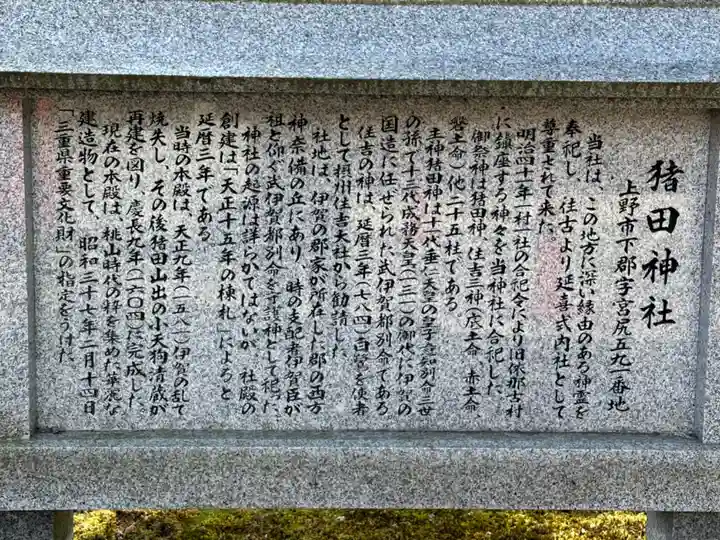 猪田神社
上野市下郡字宮尻五九一番地
当社は、この地方に深い縁由のある神霊を
奉祀し、往古より延喜式内社として
尊重されて来た。
明治四十一年一村一社の合祀令により旧依那古村
に鎮座する神々を当神社に合祀した。
御祭神は猪田神、住吉三神(底土命、赤土命、
磐土命)他二十五柱である
主神猪田神は十代垂仁天皇の皇子意知別命三世
の孫で十三代成務天皇(一三一)の御代に伊賀の
国造に任せられた武伊賀都別命である
住吉の神は、延暦三年(七八四)白鷺を使者
として摂州住吉大社から勧請した
社地は、伊賀の郡家が所在した郡の西方
神奈備の丘にあり、時の支配者伊賀臣が
祖と仰ぐ武伊賀都別命を守護神として祀った、
神社の起源は詳らかではないが、社殿の
創建は「天正十五年の棟札」によると
延暦三年である
当時の本殿は、天正九年(一五八一)伊賀の乱で
焼失し、その後猪田山出の小天狗清蔵が
再建を図り、慶長九年(一六〇四)に完成した。
現在の本殿は、桃山時代の粋を集めた華麗な
建造物として、昭和三十七年二月十四日
「三重県重要文化財」の指定をうけた。